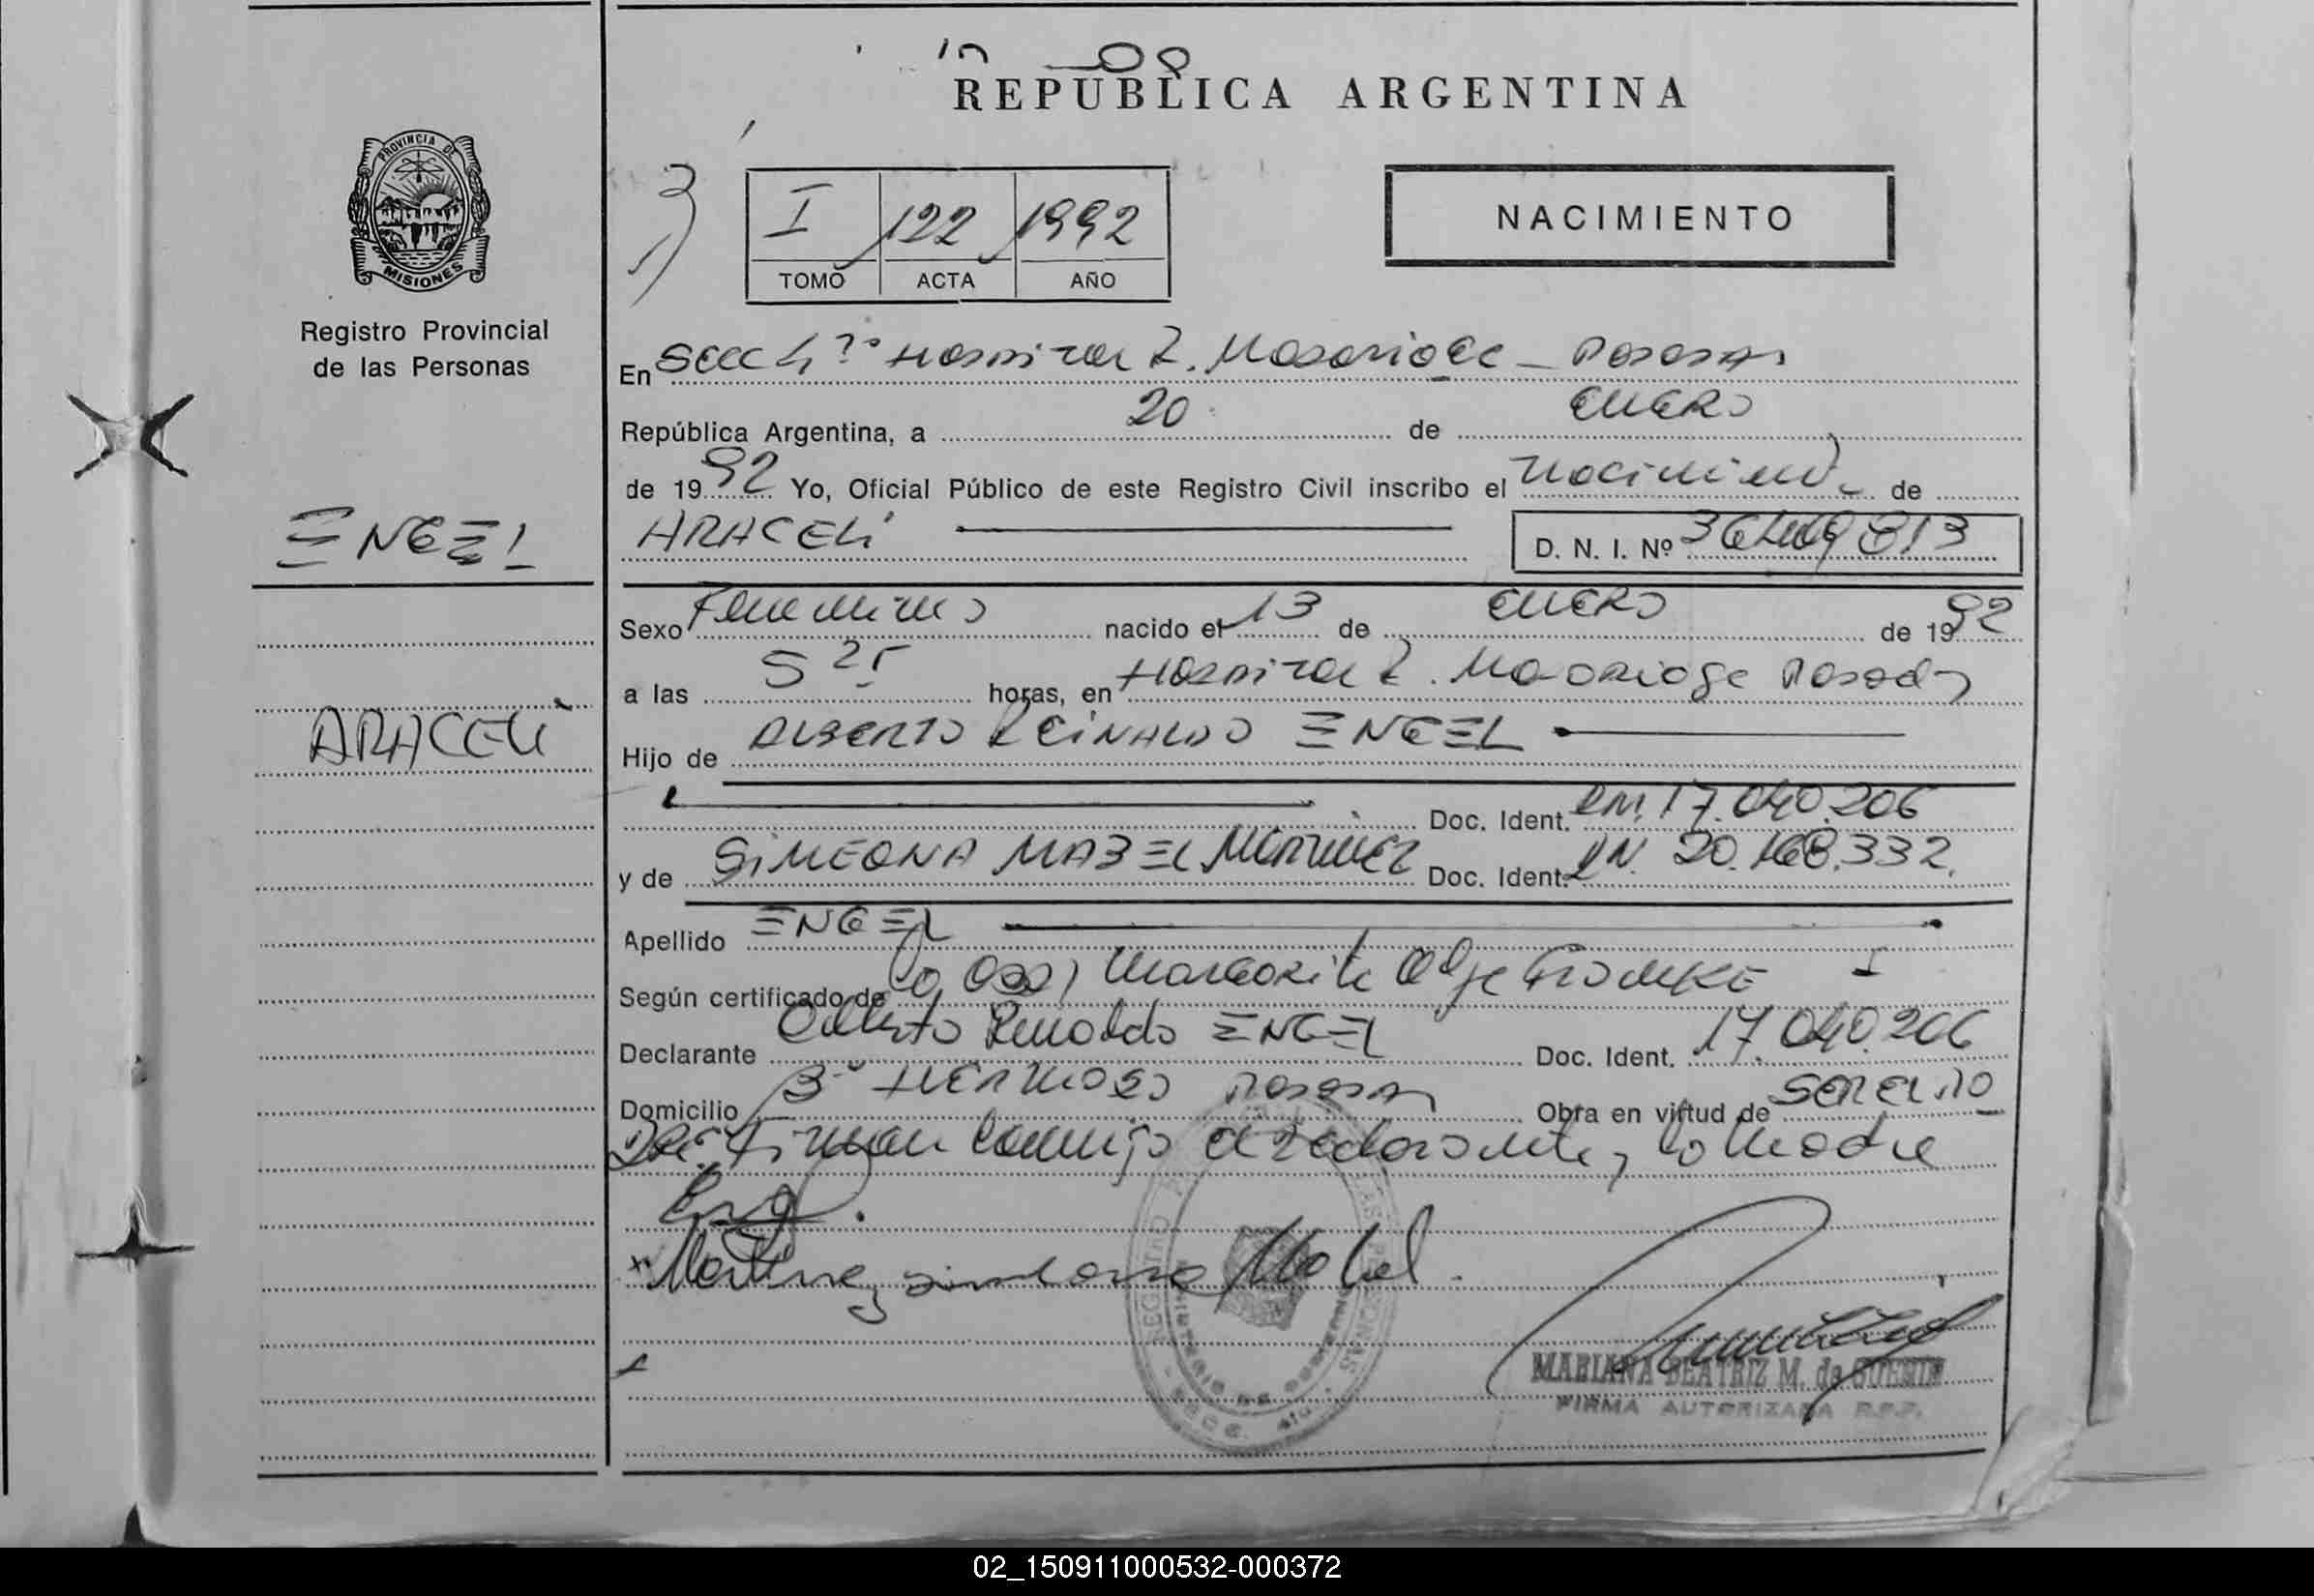 REPUBLICA ARGENTINA
PROVINCIA DE
MISIONES
Registro Provincial
de las Personas
I 122 1992
TOMO ACTA AÑO
NACIMIENTO
En Hospital R. Madariaga - Posadas
República Argentina, a 20 de ENERO
de 1992 Yo, Oficial Público de este Registro Civil inscribo el Nacimiento de
ENGEL
ARACELI
D. N. I. Nº
Sexo Femenino nacido el 13 de ENERO de 1992
ARACELI
a las 5 25 horas, en Hospital R. Madariaga Posadas
Hijo de ALBERTO REINALDO ENGEL
Doc. Ident. 17.040.206
y de SIMEONA MABEL MARTINEZ Doc. Ident. 20.168.332.
Apellido ENGEL
Según certificado de la Obst, Margarita Olga
Declarante Alberto Reinaldo ENGEL Doc. Ident. 17.040.206
Domicilio Bº HERMOSO Posadas Obra en virtud de ser el pa
dre. Firman conmigo el declarante y la Madre
Martinez simeona Mabel.
MARIANA BEATRIZ M. de GUERIN
FIRMA AUTORIZADA R.P.P.
02_150911000532-000372